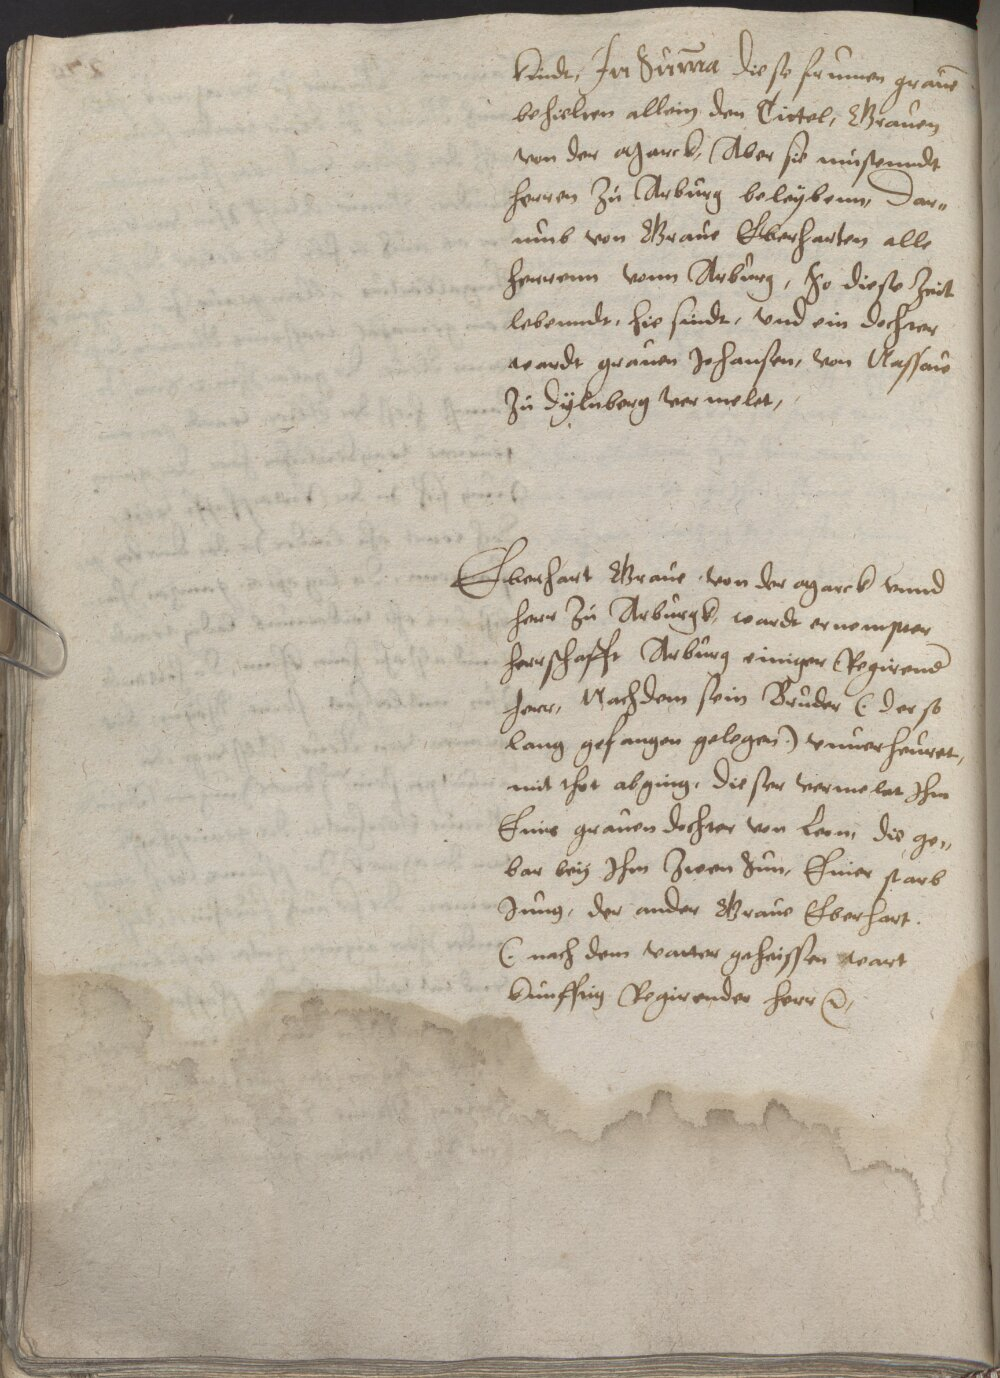 kindt, In Summa diese frumen graue͂
behielten allein den Tittel, Grauen
von der Marck, Aber sie musten nidt
herren zu Arburg beleybenn, Dar¬
umb von Graue Eberharten alle
herrenn vonn Arburg, So diese Zeit
lebenndt, hie sindt, vnd ein dochter
wardt grauen Johansen, von Nassaue
zu dÿlnberg vermelet,
Eberhart Graue von der Marck vnnd
herr zu Arburgk, wardt ernempter
herrschafft Arburg einiger Regirend
herr, Nachdem sein Bruder (: der so
lang gefangen gelegen:) vnuerheuret,
mit thot abging, dieser vermelet Ihm
Eins grauen dochter von Leon, die ge¬
bar beÿ Ihm zwen Sun, Einer starb
Jung, der ander Graue Eberhart.
(: nach dem vatter geheissen wart
kunfftig Regirender herr :)